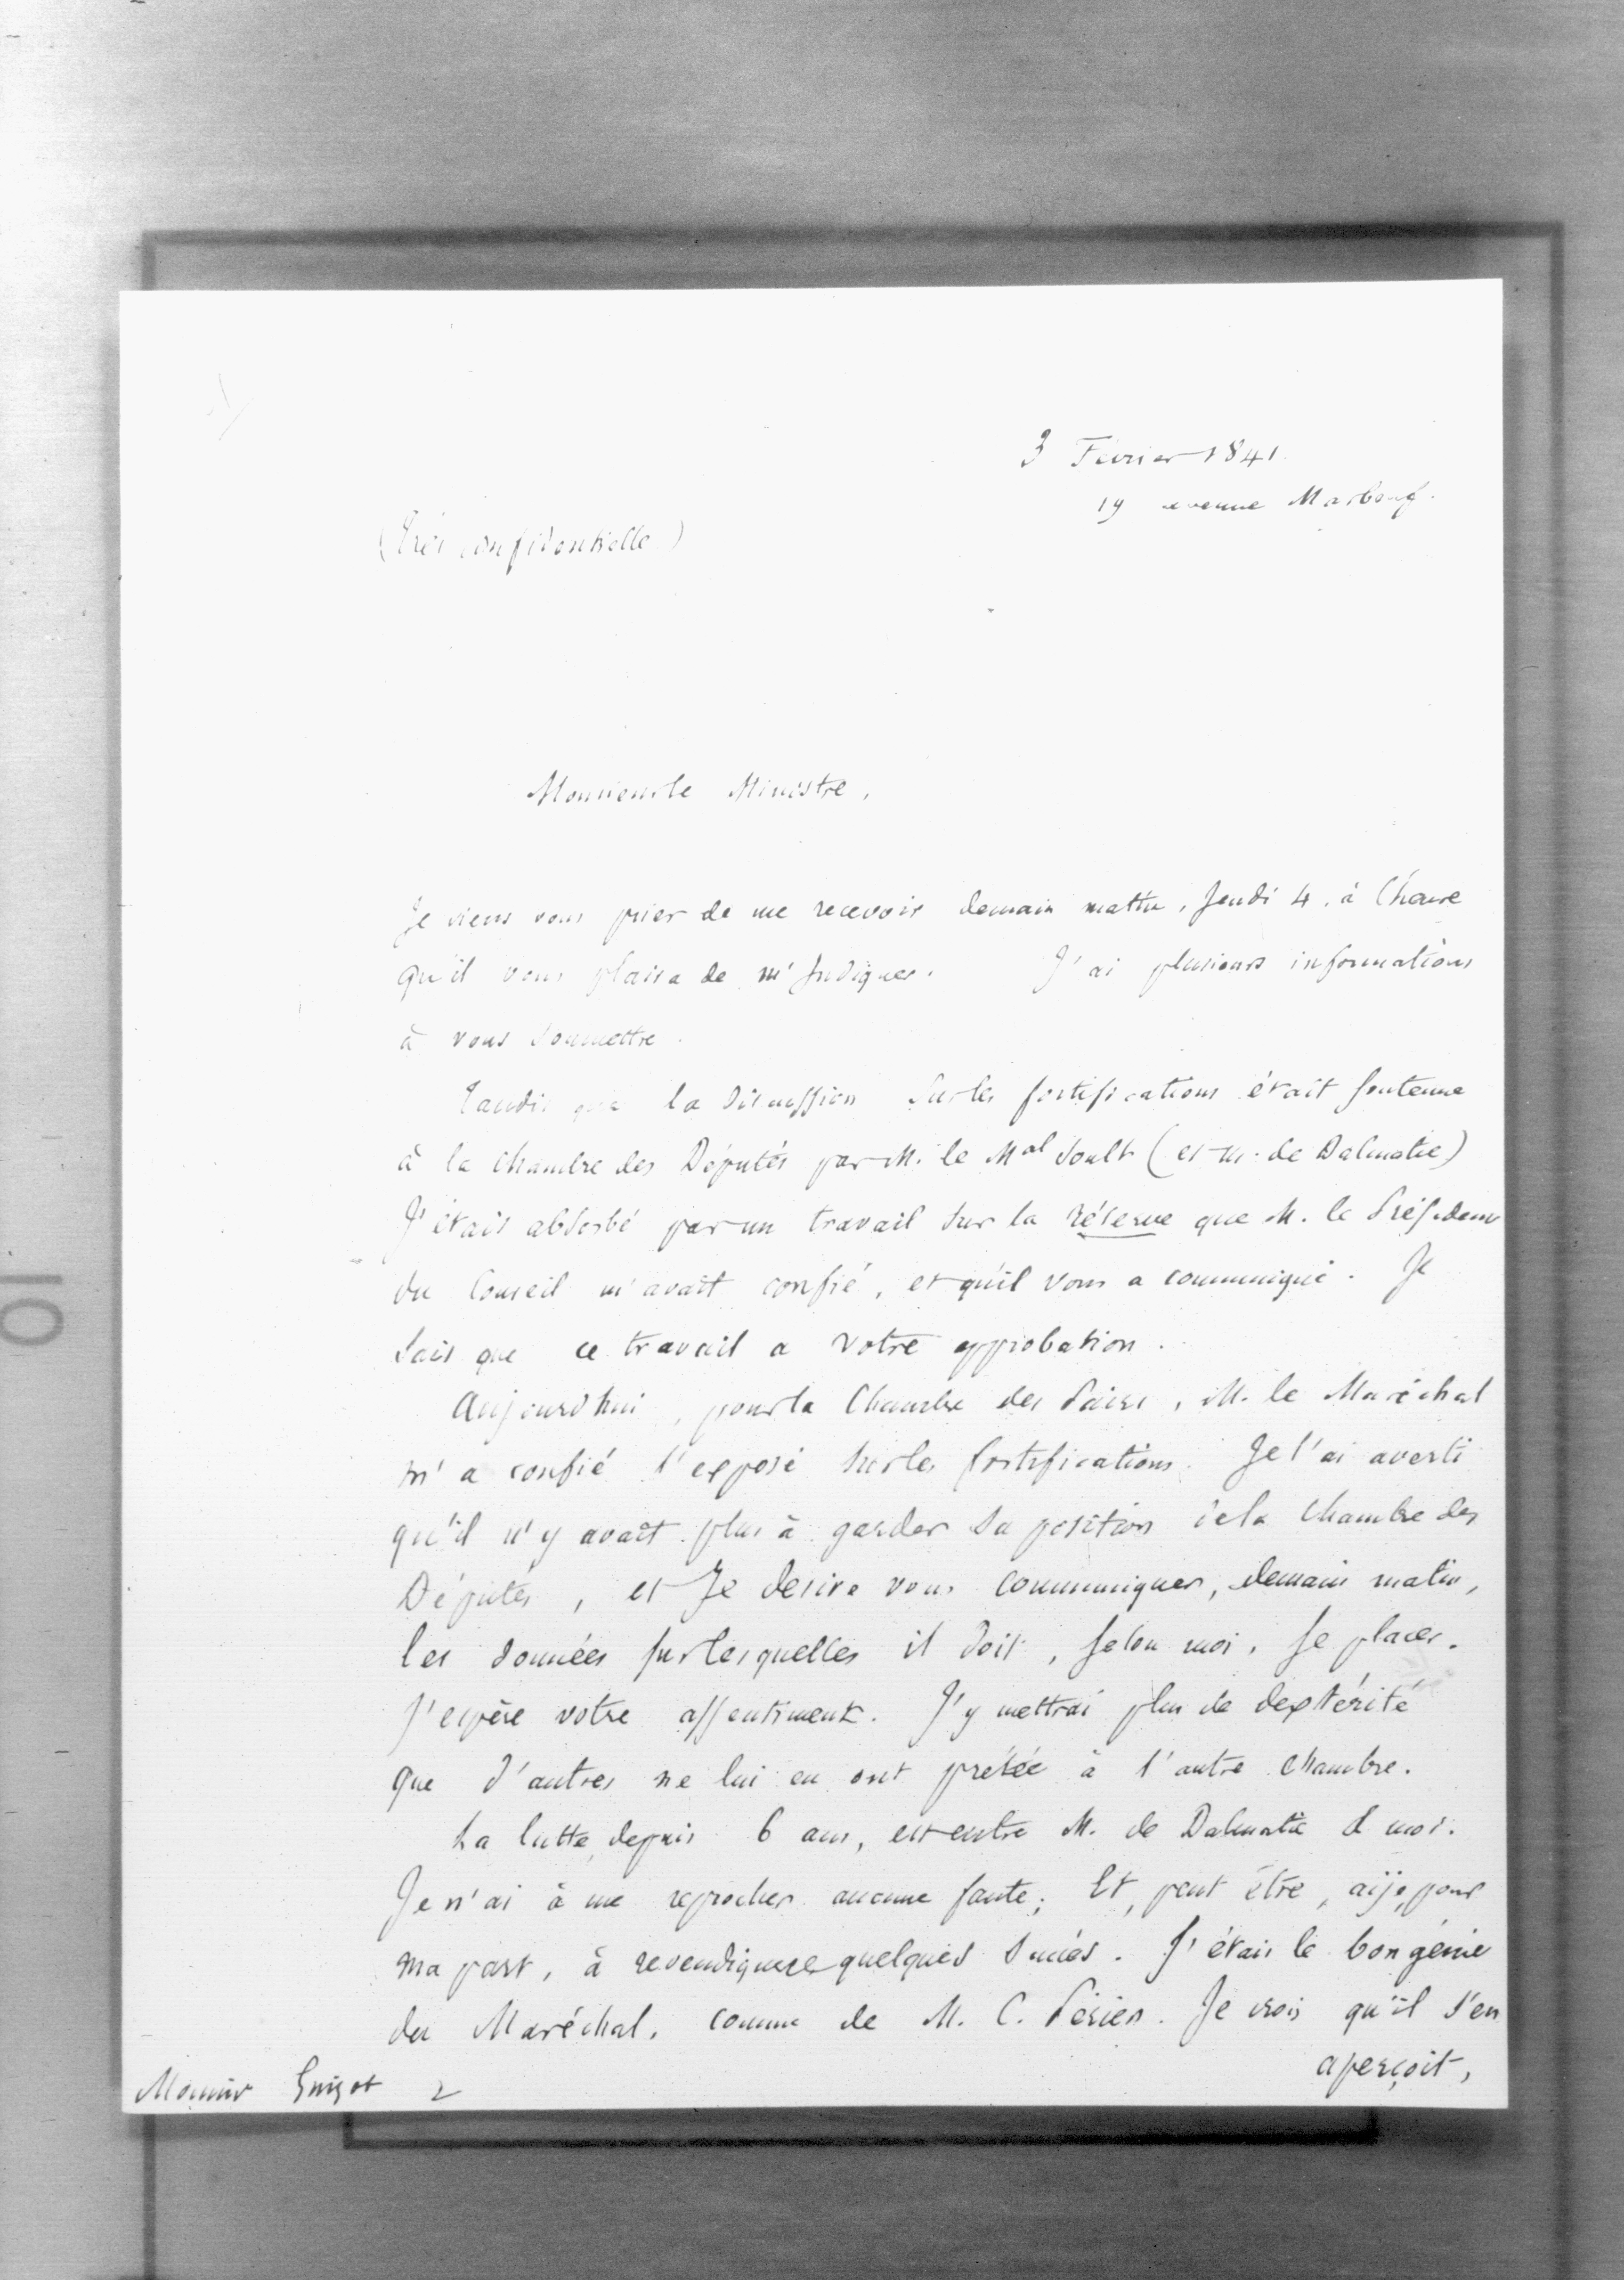 3 Février 1841.
19 avenue Marbeuf.
(Très confidentielle)
Monsieur le Ministre,
Je viens vous prier de me recevoir demain matin, Jeudi 4, à l'heure
qu'il vous plaira de m'Indiquer. J'ai plusieurs informations
à vous soumettre.
Tandis que la discussion sur les fortifications était soutenue
à la chambre des Députés par M. le Mal Soult (et M. de Dalmatie)
J'étais absorbé par un travail sur la réserve que M. le Président
du Conseil m'avait confié, et qu'il vous a communiqué. Je
sais que ce travail a votre approbation.
Aujourd'hui, pour la Chambre des Pairs, M. le Maréchal
m'a confié l'exposé sur les fortifications. Je l'ai averti
qu'il n'y avait plus à garder sa position de la Chambre des
Députés, et Je desire vous communiquer, demain matin,
les données sur lesquelles il doit, selon moi, se placer.
J'espère votre assentiment. J'y mettrai plus de dextérité
que d'autres ne lui en ont prêtée à l'autre chambre.
La lutte, depuis 6 ans, est entre M. de Dalmatie & moi.
Je n'ai à me reprocher aucune faute; Et, peut être, aije, pour
ma part, à revendiquer quelques succès. J'étais le bon génie
du Maréchal, comme de M. C. Périer. Je crois qu'il s'en
aperçoit,
Monsieur Guizot 2
10